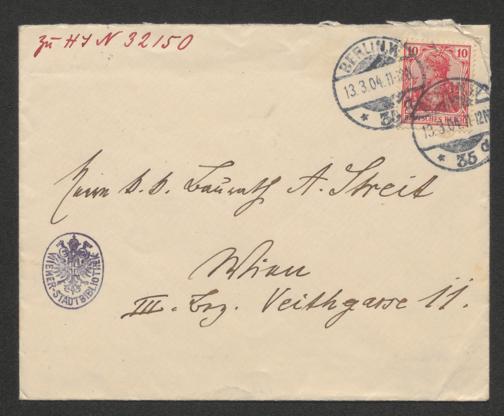 zu HIN 32150
BERLIN.W.
13.3.04.11-12N.
* 35 d
10 10
DEUTSCHES REICH
13.3.04.11-12N.
* 35 d
Herrn k. k. Baurath A. Streit
Wien
III. Bez. Veithgasse 11.
WIENER-STADTBIBLIOTHEK